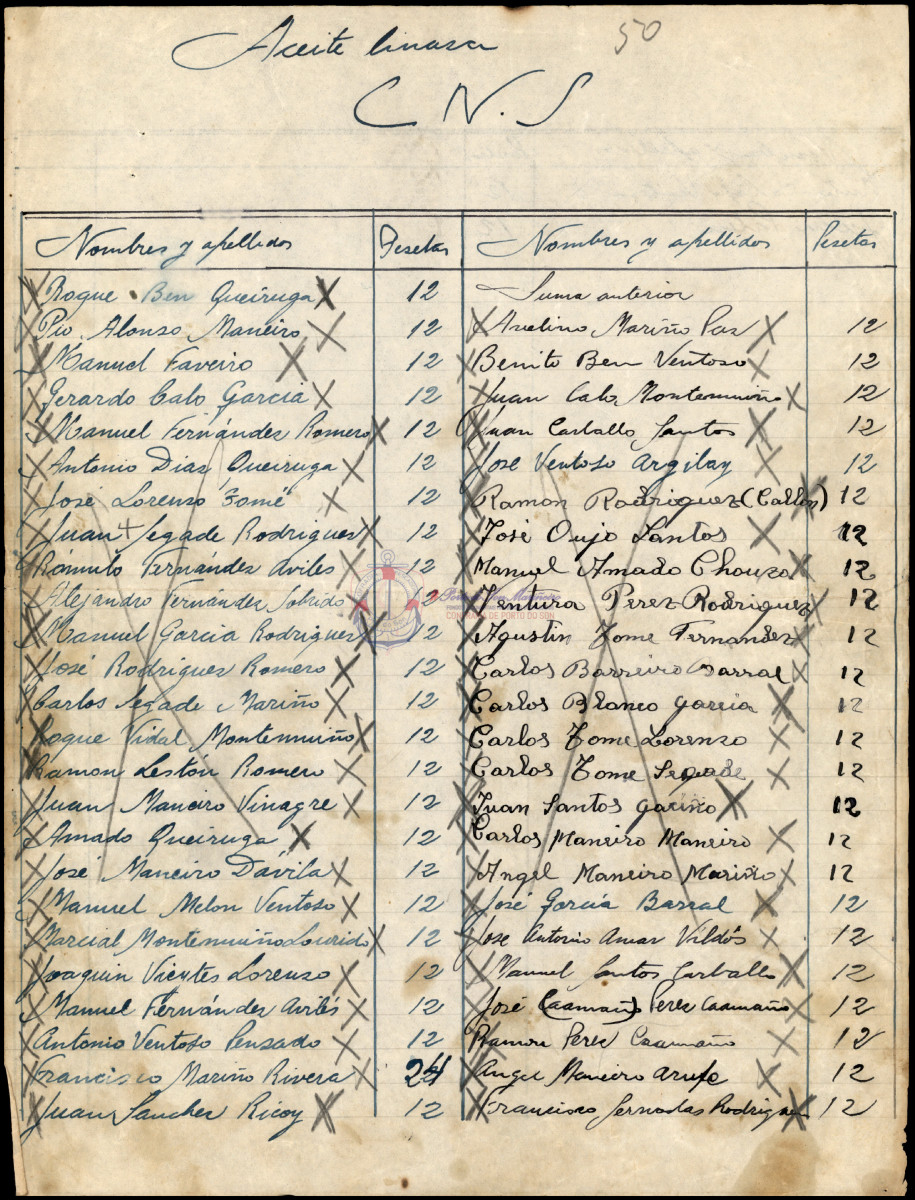 50
Aceite linasa
C N. S
Nombres y apellidos Pesetas
Roque Ben Queiruga 12
Pio Alonso Maneiro 12
Manuel Faveiro 12
Gerardo Calo Garcia 12
Manuel Fernández Romero 12
Antonio Dias Queiruga 12
José Lorenzo Tomé 12
Juan Segade Rodriguez 12
Rómulo Fernández Aviles 12
Alejandro Fernández Sobrido 12
Manuel Garcia Rodriguez 12
José Rodriguez Romero 12
Carlos Segade Mariño 12
Roque Vidal Montemuiño 12
Ramon Lestón Romero 12
Juan Maneiro Vinagre 12
Amado Queiruga 12
José Maneiro Dávila 12
Manuel Melon Ventoso 12
Marcial Montemuiño Lourido 12
Joaquin Vicytes Lorenzo 12
Manuel Fernández Avilés 12
Antonio Ventoso Pensado 12
Francisco Mariño Rivera 24
Juan Sanchez Ricoy 12
Nombres y apellidos Pesetas
Suma anterior
Avelino Mariño Paz 12
Benito Ben Ventoso 12
Juan Calo Montemuiño 12
Juan Carballo Santos 12
Jose Ventoso Argibay 12
Ramon Rodriguez 12
José Oujo Santos 12
Manuel Amado Chouza 12
Ventura Perez Rodriguez 12
Agustin Tome Fernandez 12
Carlos Barreiro Barral 12
Carlos Blanco Garcia 12
Carlos Tome Lorenzo 12
Carlos Tome Segade 12
Juan Santos Gariño 12
Carlos Maneiro Maneiro 12
Angel Maneiro Mariño 12
José García Barral 12
Jose Antonio Amar Vildós 12
Manuel Santos Carballo 12
José (Caamaño) Perez Caamaño 12
Ramon Perez Caamaño 12
Angel Maneiro Arufe 12
Francisco Sernadas Rodriguez 12
COFRADÍA DE PORTO DO SON